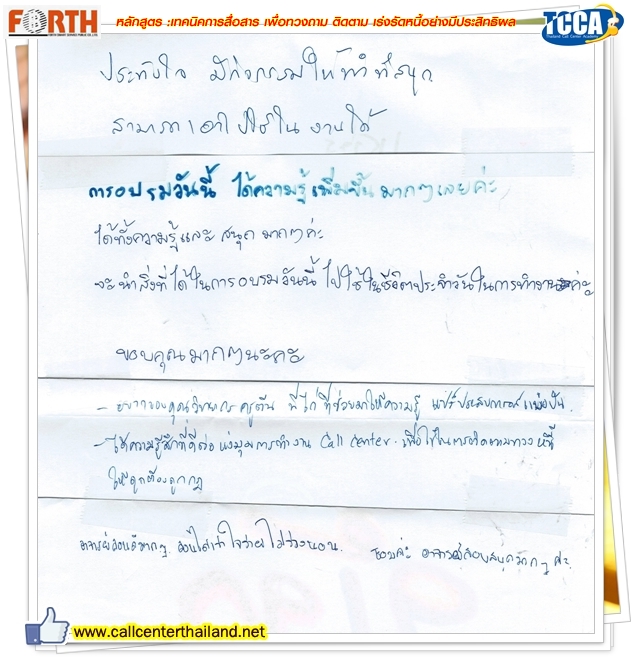 FORTH
FORTH SMART SERVICE PUBLIC CO.,LTD.
หลักสูตร :เทคนิคการสื่อสาร เพื่อทวงถาม ติดตาม เร่งรัดหนี้อย่างมีประสิทธิผล
TCCA
Thailand Call Center Academy
ประทับใจ มีกิจกรรมให้ทำที่สนุก
สามารถเอาไปใช้ใน งานได้
การอบรมวันนี้ ได้ความรู้เพิ่มขึ้นมากๆเลยค่ะ
ได้ทั้งความรู้และ สนุก มากๆค่ะ
จะนำสิ่งที่ได้ในการอบรมวันนี้ ไปใช้ในชีวิตประจำวันในการทำงานค่ะ
ขอบคุณมากๆนะคะ
- ขอบคุณวิทยากร พี่ไก่ ที่ช่วยมาให้ความรู้ แชร์ประสบการณ์แบ่งปัน.
- ได้ความรู้สึกที่ดีต่อ แง่มุมการทำงาน Call Center. เพื่อใช้ในการติดตามทวงหนี้
ให้ถูกต้องถูกกฎ
อาจารย์สอนดีมากๆ. เข้าใจง่าย ไม่ง่วงนอน. ชอบค่ะ อาจารย์สอนสนุกมากๆ ค่ะ.
www.callcenterthailand.net